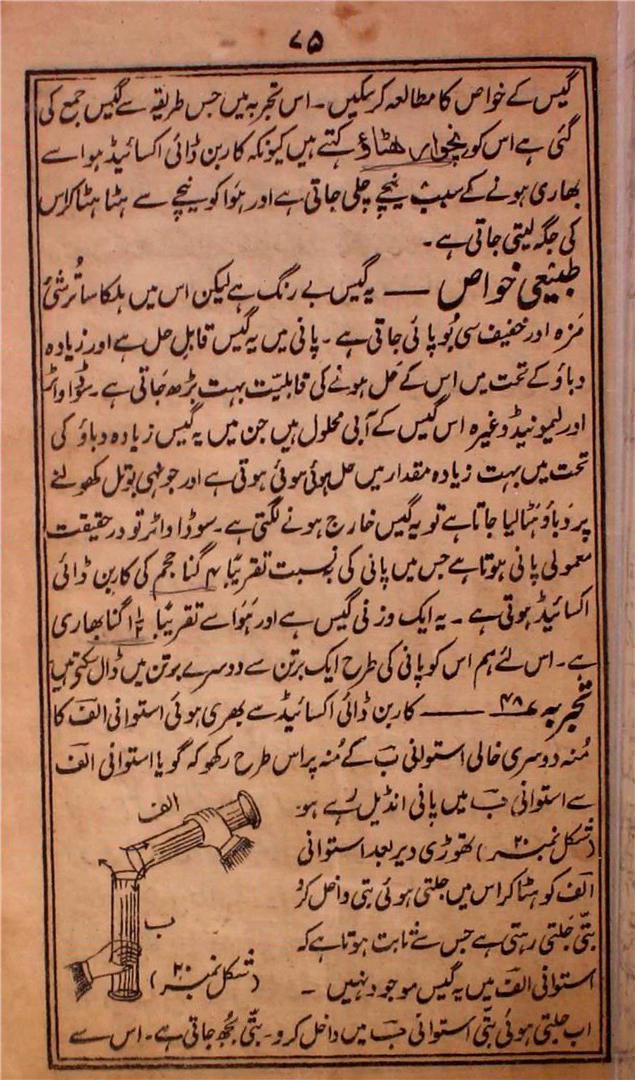 ۷۵
گیس کے خواص کا مطالعہ کر سکیں۔ اس تجربہ میں جس طریقے سے گیس جمع کی
گئی ہے اس کو نچوار ھٹاؤ کہتے ہیں کیونکہ کاربن ڈائی اکسائیڈ ہوا سے
بھاری ہونے کے سبب نیچے چلی جاتی ہے اور ہوا کو نیچے سے ہٹا ہٹا کر اس
کی جگہ لیتی جاتی ہے۔
طبیعی خواص — یہ گیس بے رنگ ہے لیکن اس میں ہلکا سا تُرشئی
مزہ اور خفیف سی بُو پائی جاتی ہے۔ پانی میں یہ گیس قابل حل ہے اور زیادہ
دباؤ کے تحت میں اس کے حل ہونے کی قابلیّت بہت بڑھ جاتی ہے۔ سوڈا واٹر
اور لیمونیڈ وغیرہ اس گیس کے آبی محلول ہیں جن میں یہ گیس زیادہ دباؤ کی
تحت میں بہت زیادہ مقدار میں حل ہوئی ہوئی ہوتی ہے اور جونہی بوتل کھولنے
پر دباؤ ہٹا لیا جاتا ہے تو یہ گیس خارج ہونے لگتی ہے۔ سوڈا واٹر تو در حقیقت
معمولی پانی ہوتا ہے جس میں پانی کی نسبت تقریباً ۴ گنا حجم کی کاربن ڈائی
اکسائیڈ ہوتی ہے۔ یہ ایک وزنی گیس ہے اور ہَوا سے تقریباً ۱½ گنا بھاری
ہے۔ اس لئے ہم اس کو پانی کی طرح ایک برتن سے دوسرے برتن میں ڈال سکتے ہیں
تجربہ ۴۸ — کاربن ڈائی اکسائیڈ سے بھری ہوئی استوانی الف کا
مُنہ دوسری خالی استوانی ب کے مُنہ پر اس طرح رکھو کہ گویا استوانی الف
سے استوانی ب میں پانی انڈیل رہے ہو۔
(شکل نمبر ۲۰) تھوڑی دیر بعد استوانی
الف کو ہٹا کر اس میں جلتی ہوئی بتی داخل کرو
بتّی جلتی رہتی ہے جس سے ثابت ہوتا ہے کہ
استوانی الف میں یہ گیس موجود نہیں۔
اب جلتی ہوئی بتّی استوانی ب میں داخل کرو۔ بتّی بُجھ جاتی ہے۔ اس سے
الف
ب
(شکل نمبر ۲۰)